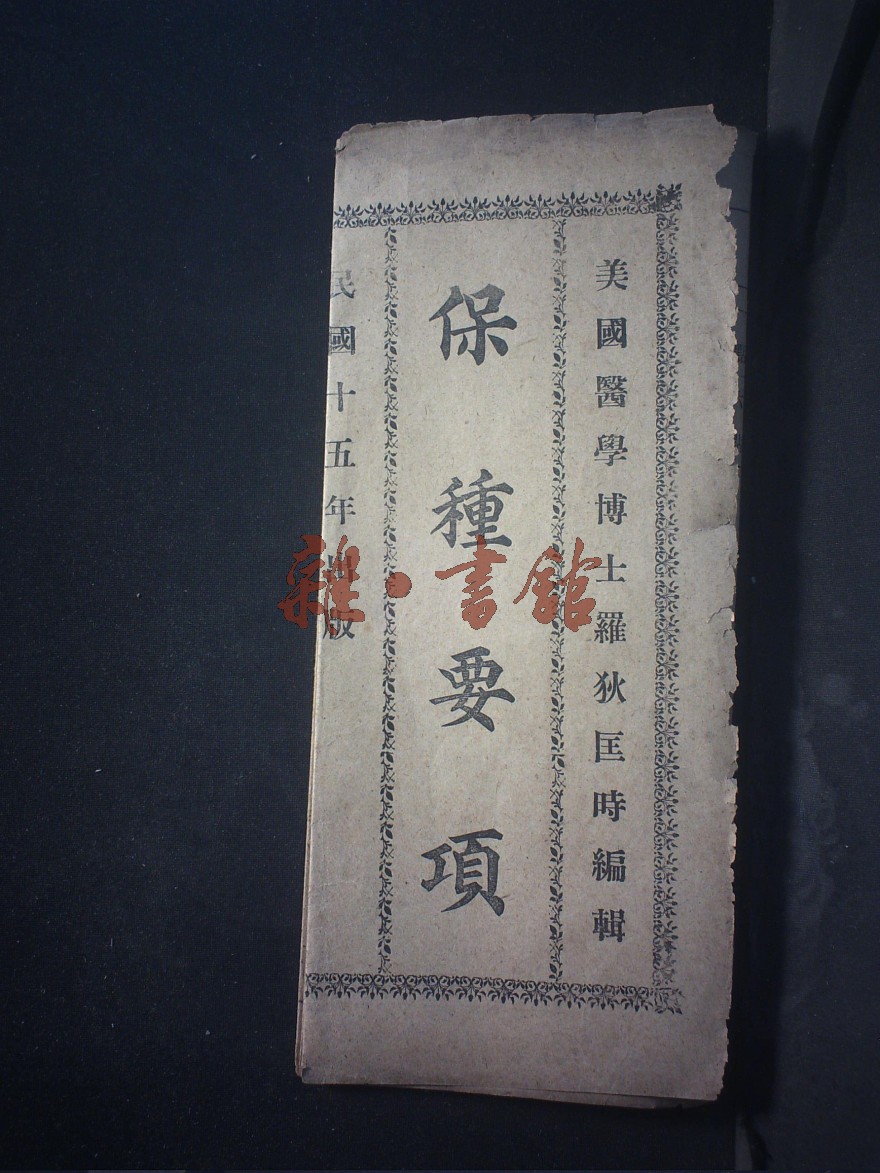 美國醫學博士羅狄匡時編輯
保種要項
民國十五年四版
雜·書館